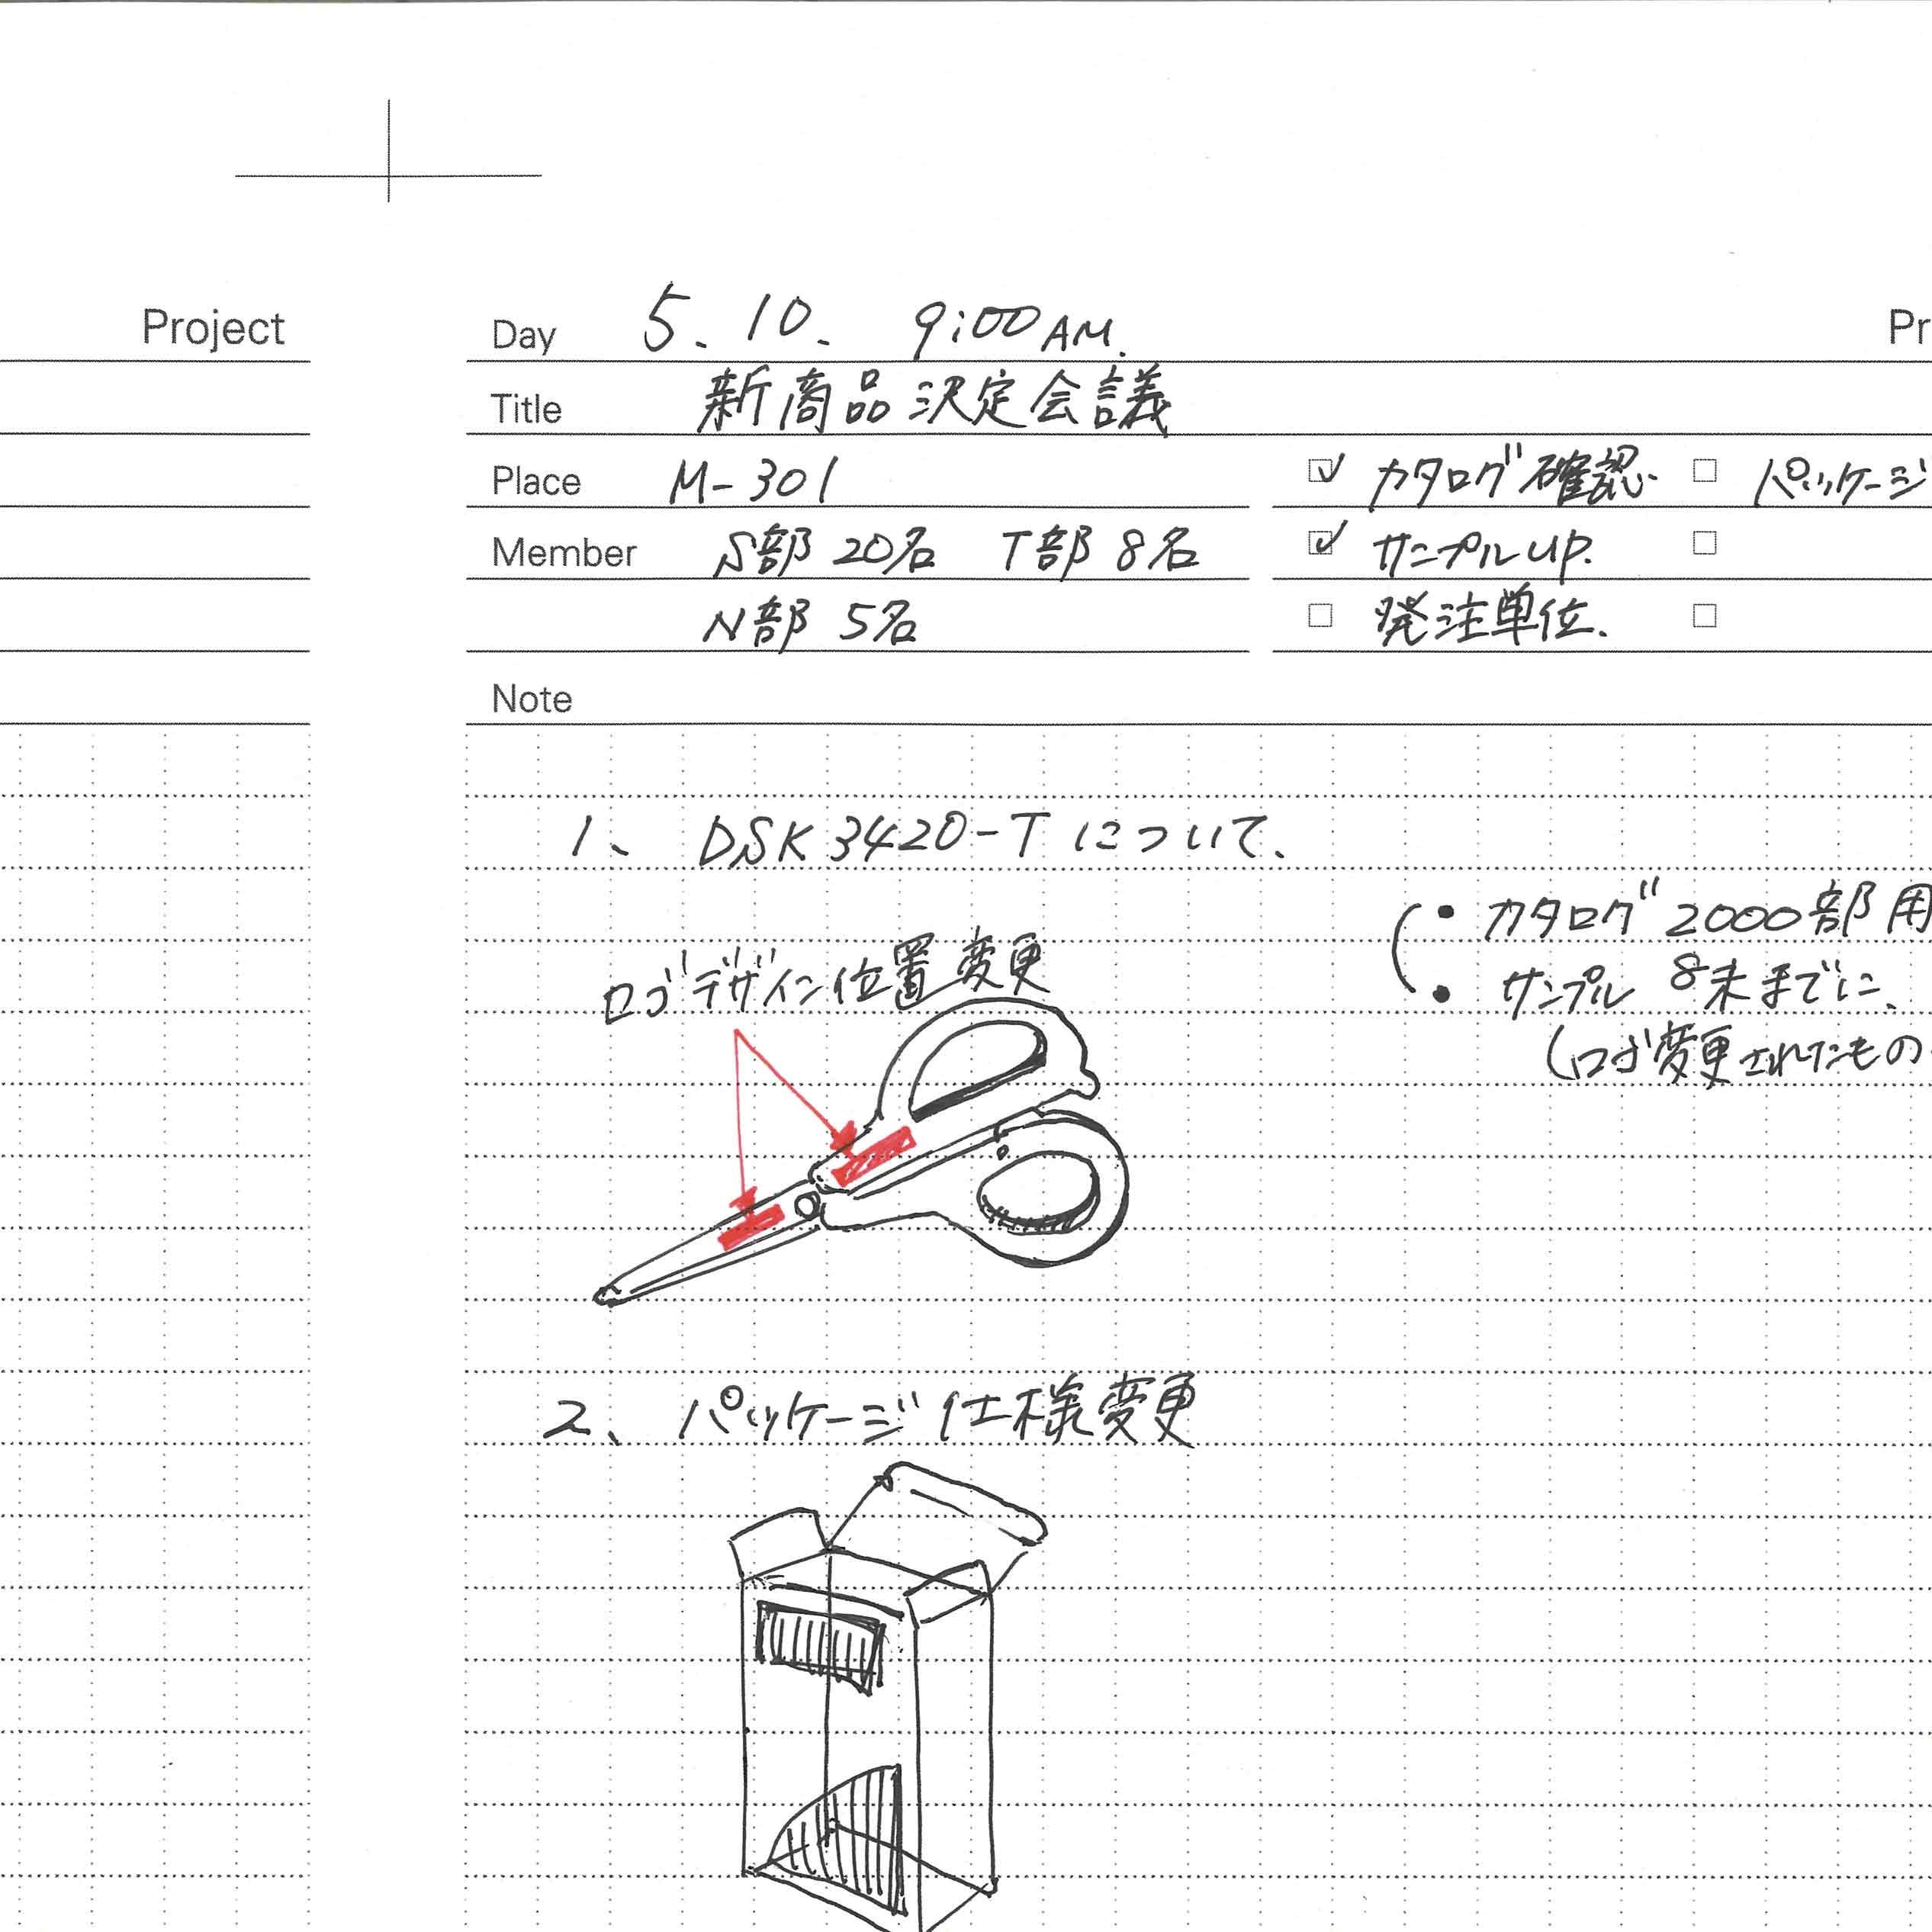 Project
Day 5. 10. 9:00 AM.
Pr
Title 新商品決定会議
Place M-301
☑ カタログ確認. ☐ パッケージ
Member S部 20名 T部 8名
☑ サンプルUP. ☐
N部 5名
☐ 発注単位. ☐
Note
1、 DSK3420-T について、
• カタログ 2000部 用
ロゴデザイン位置変更
• サンプル 8末までに、
(ロゴ変更されたもの
2、パッケージ仕様変更